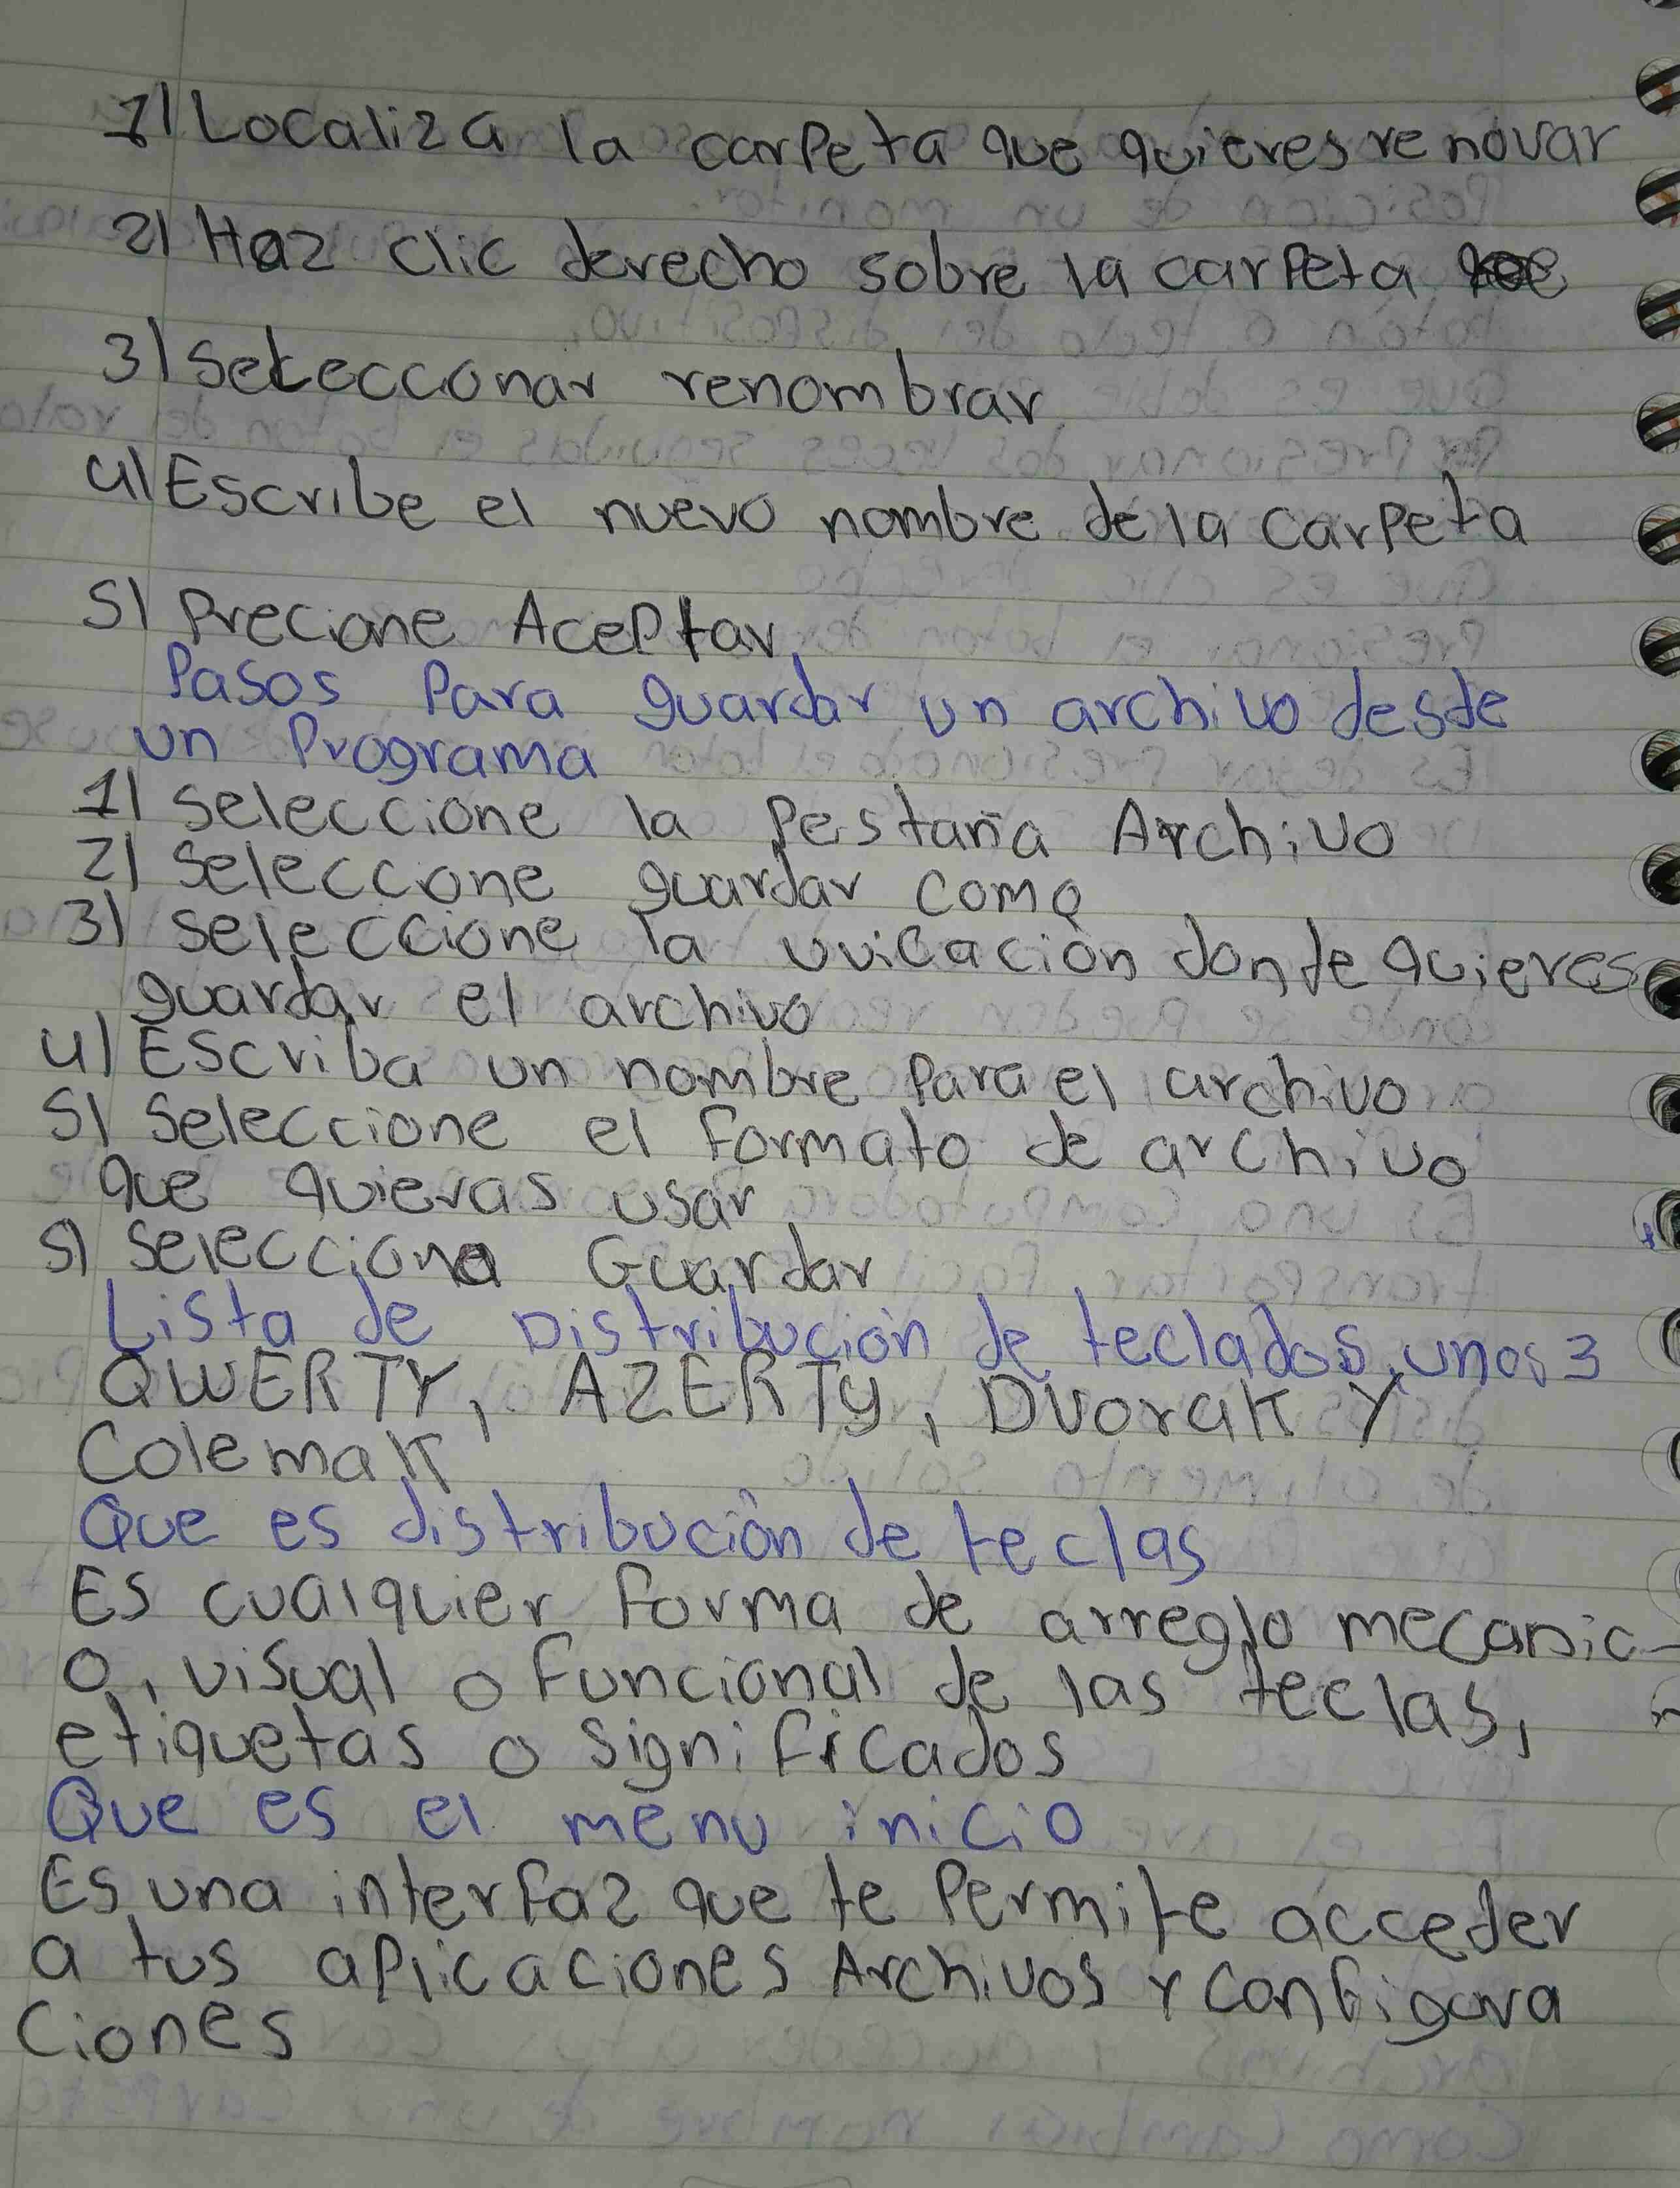 1) Localiza la carpeta que quieres renovar
2) Haz clic derecho sobre la carpeta
3) Seleccconar renombrar
4) Escribe el nuevo nombre de la carpeta
5) Precione Aceptar
Pasos Para guardar un archivo desde
un Programa
1) Seleccione la Pestaña Archivo
2) Seleccone guardar como
3) seleccione la uvicación donde quieres
guardar el archivo
4) Escriba un nombre Para el archivo
5) Seleccione el formato de archivo
que quieras usar
5) Selecciona Guardar
Lista de Distribución de teclados, unos 3
QWERTY, AZERTY, DVorak Y
Colemak
Que es distribución de teclas
Es cualquier forma de arreglo mecanic-
o, visual o funcional de las teclas,
etiquetas o significados
Que es el menu inicio
Es una interfaz que te Permite acceder
a tus aplicaciones Archivos y configura
ciones